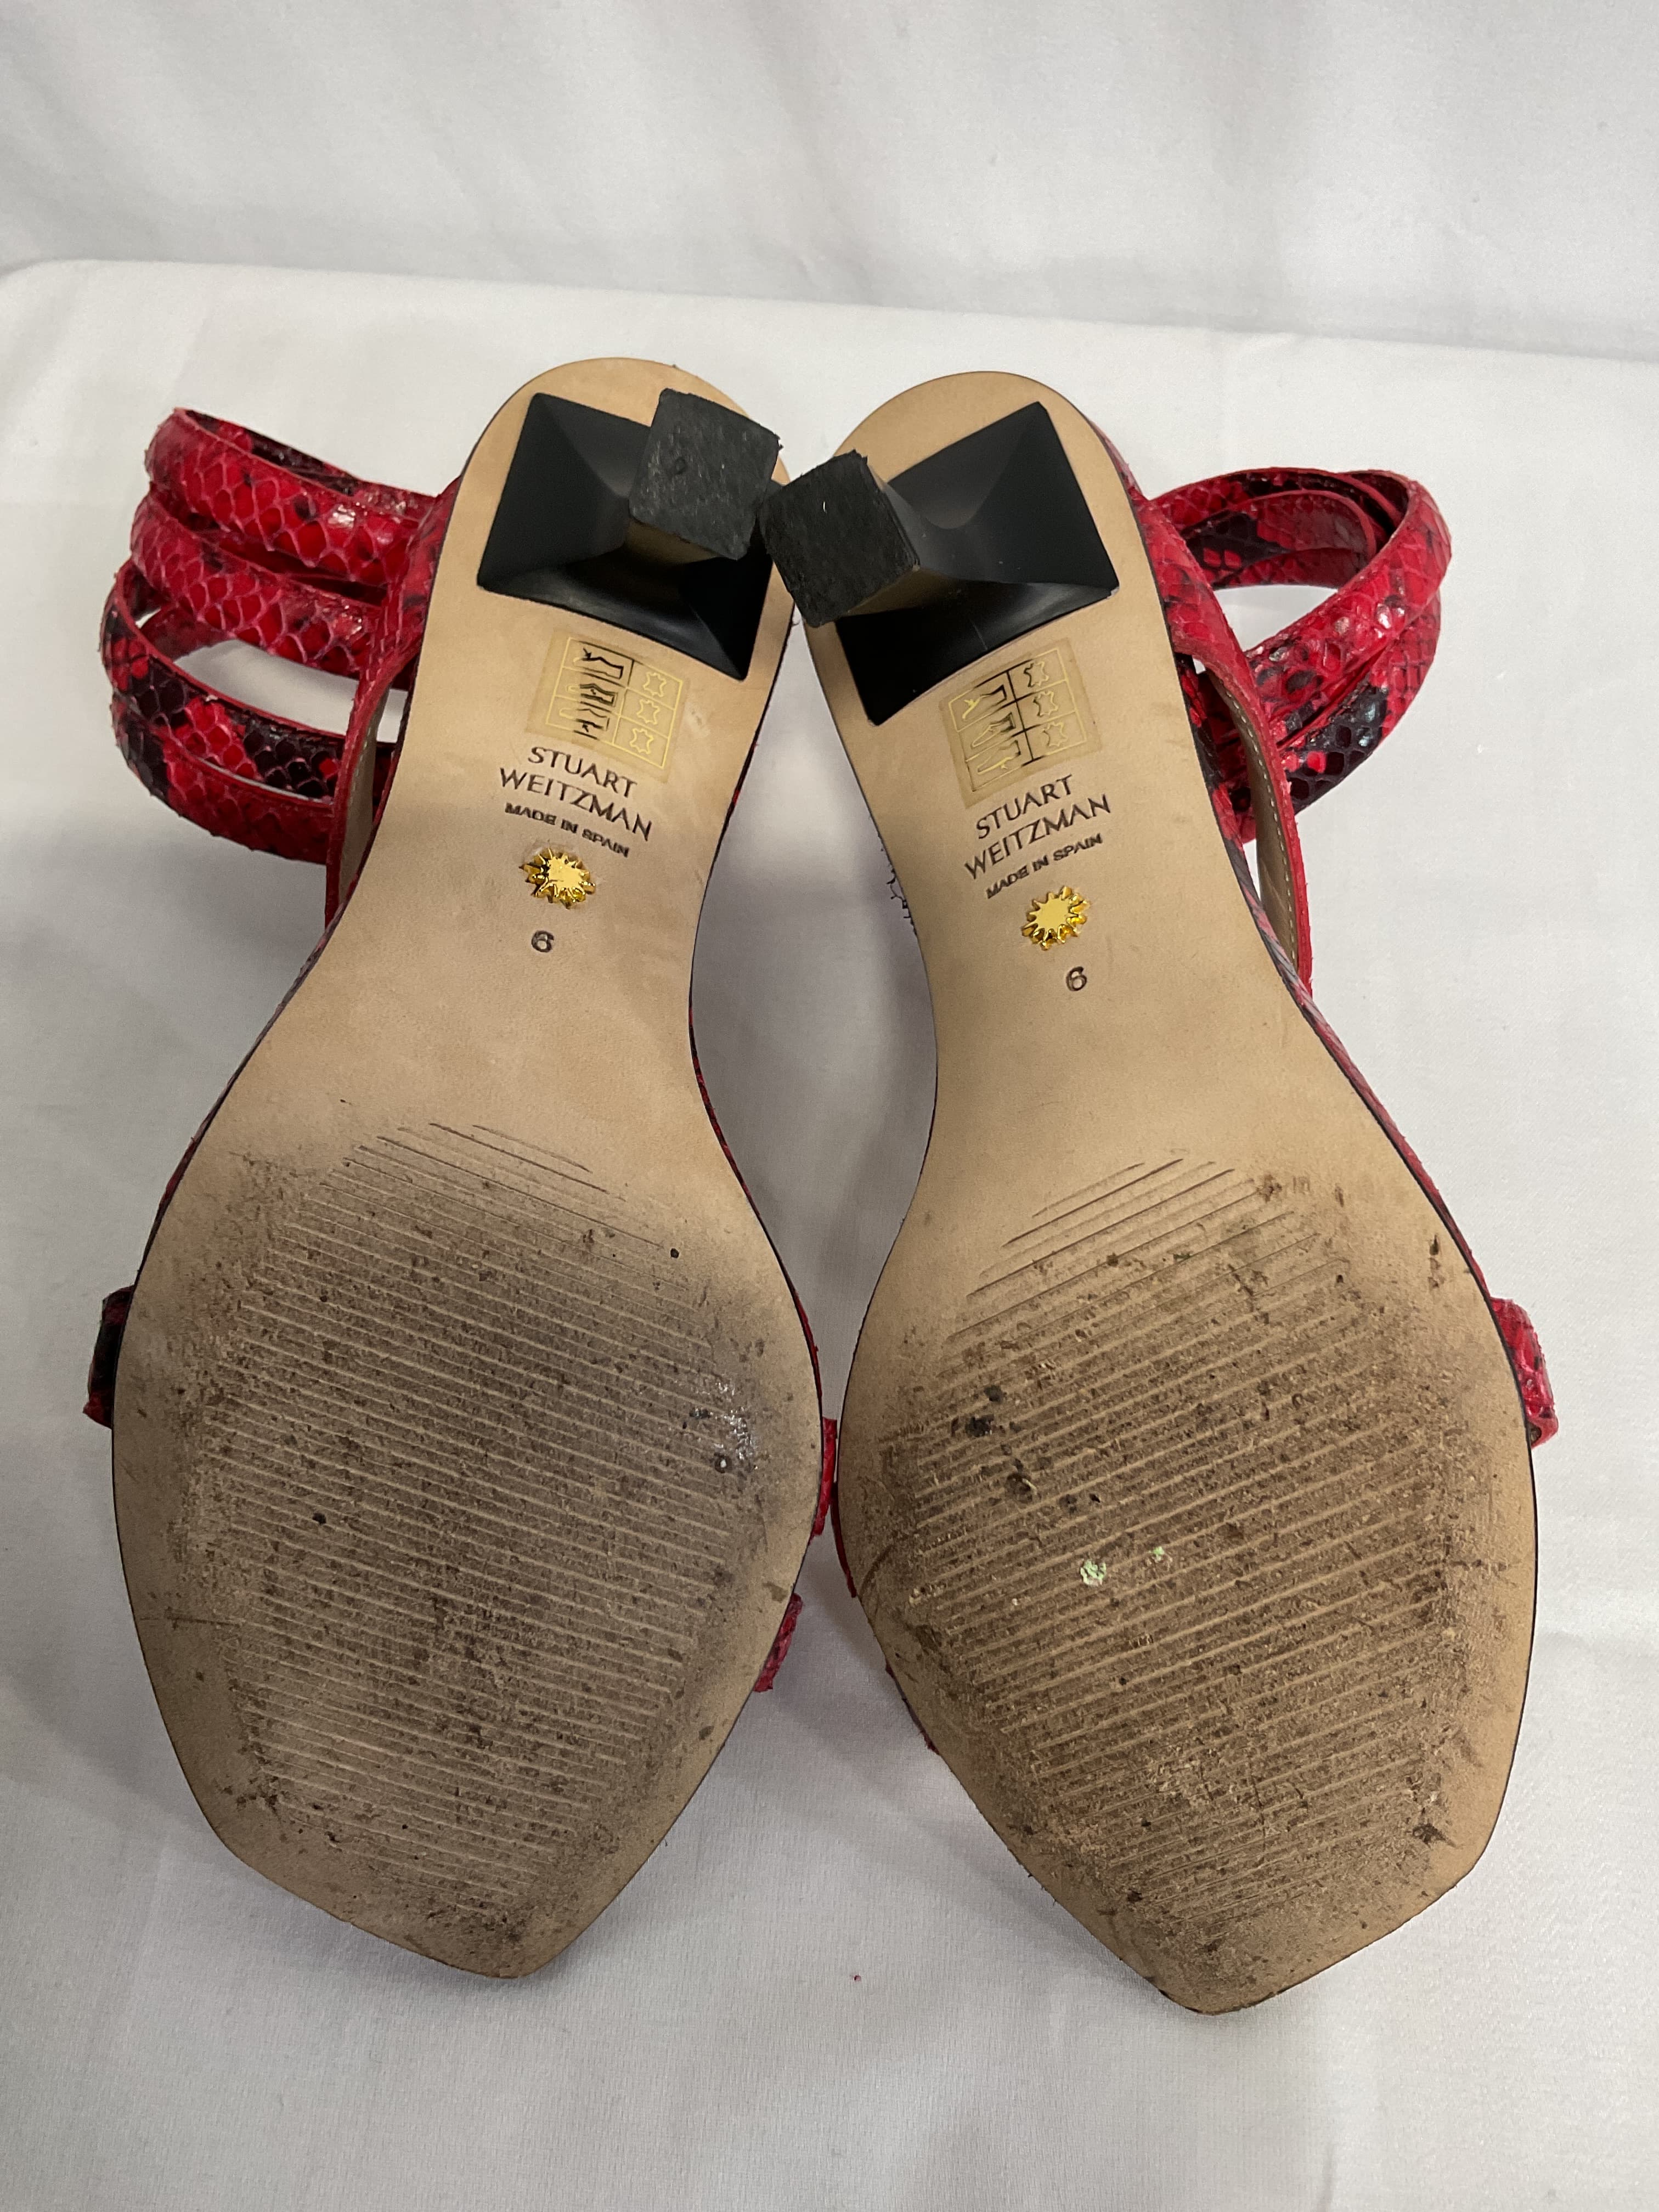 STUART
WEITZMAN
MADE IN SPAIN
6
STUART
WEITZMAN
MADE IN SPAIN
6